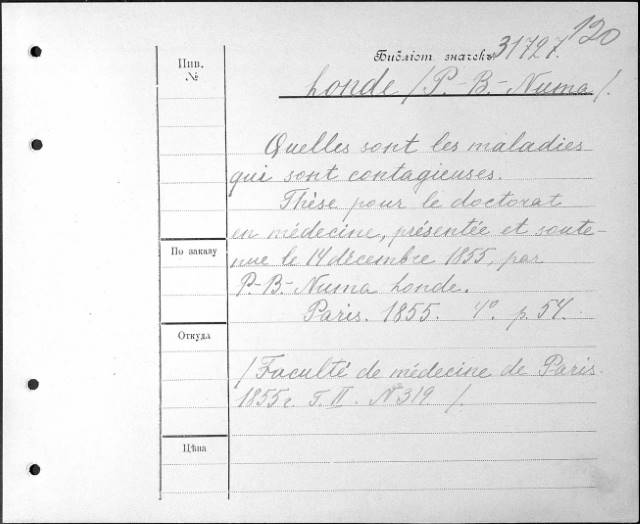 120
Инв. №
Библіот. значекъ 31727.
Londe /P.-B.-Numa/.
Quelles sont les maladies
qui sont contagieuses.
Thèse pour le doctorat
en médecine, présentée et soute-
nue le 14 décembre 1855, par
P.-B.-Numa Londe.
Paris. 1855. 4º. p. 54.
/Faculté de médecine de Paris.
1855 г. T. II. № 319 /.
По заказу
Откуда
Цѣна